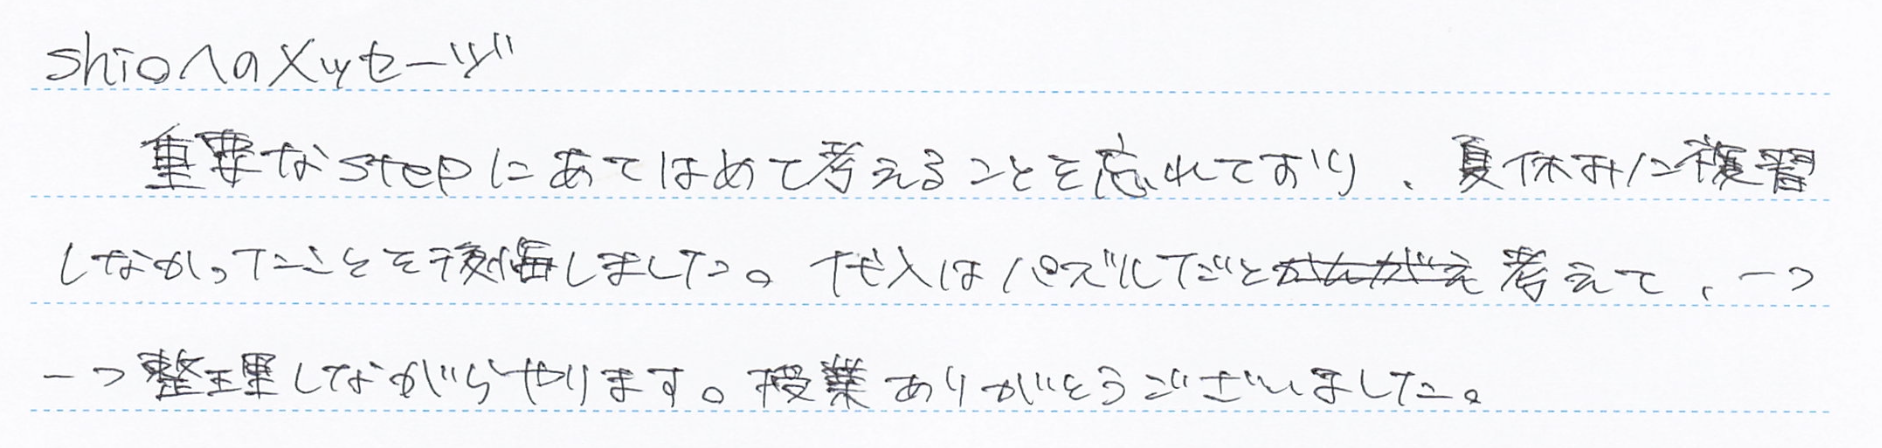 shioへのメッセージ
重要なstepにあてはめて考えることを忘れており、夏休みに複習
しなかったことを後悔しました。代入はパズルだとかんがえ考えて、一つ
一つ整理しながらやります。授業ありがとうございました。